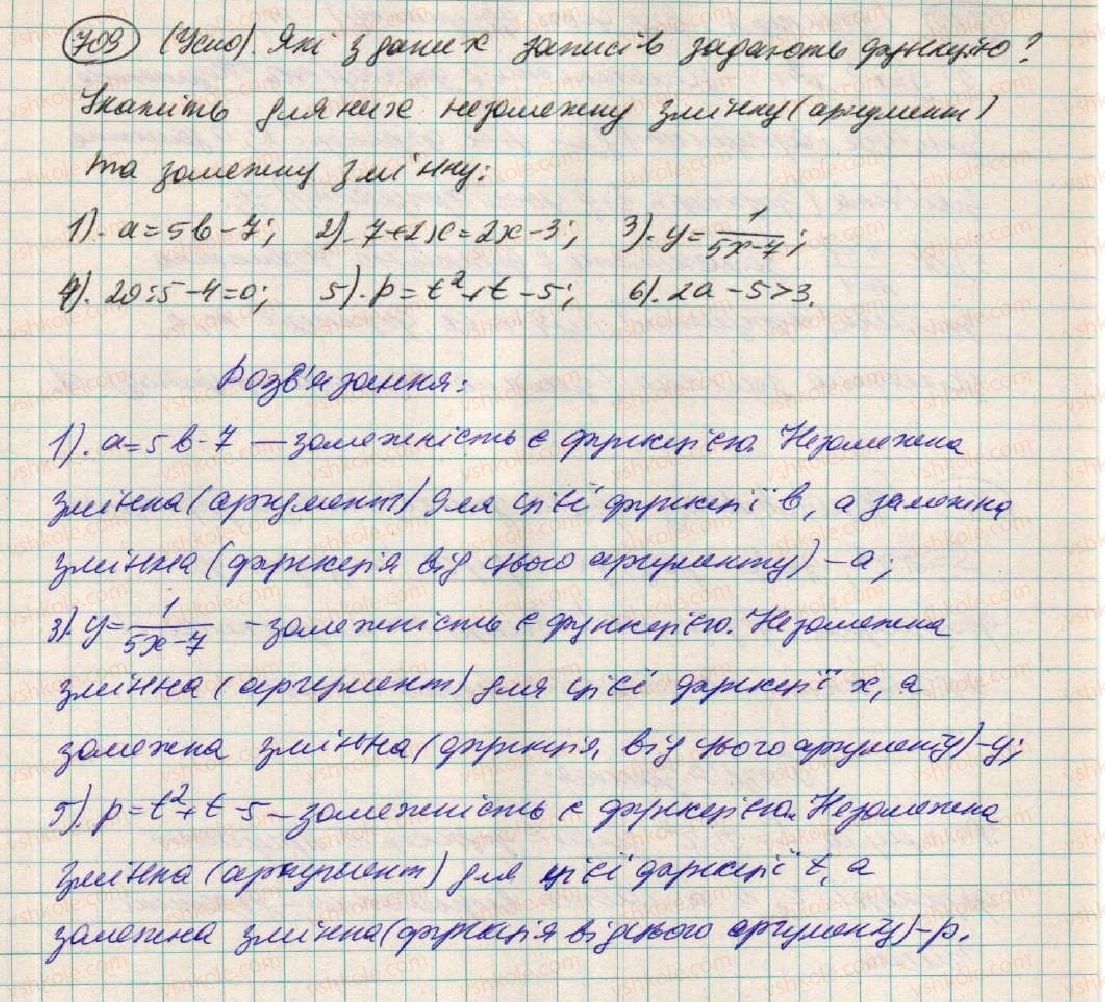 709 (Усно). Які з даних записів задають функцію?
Укажіть для них незалежну змінну (аргумент)
та залежну змінну:
1). a=5b-7; 2). 7+2x=2x-3; 3). y=1/(5x-7);
4). 20:5-4=0; 5). p=t²+t-5; 6). 2a-5>3.
Розв'язання:
1). a=5b-7 — залежність є функцією. Незалежна
змінна (аргумент) для цієї функції b, а залежна
змінна (функція від цього аргументу) – a;
3). y=1/(5x-7) – залежність є функцією. Незалежна
змінна (аргумент) для цієї функції x, а
залежна змінна (функція, від цього аргументу) – y;
5). p=t²+t-5 – залежність є функцією. Незалежна
змінна (аргумент) для цієї функції t, а
залежна змінна (функція від цього аргументу) – p.